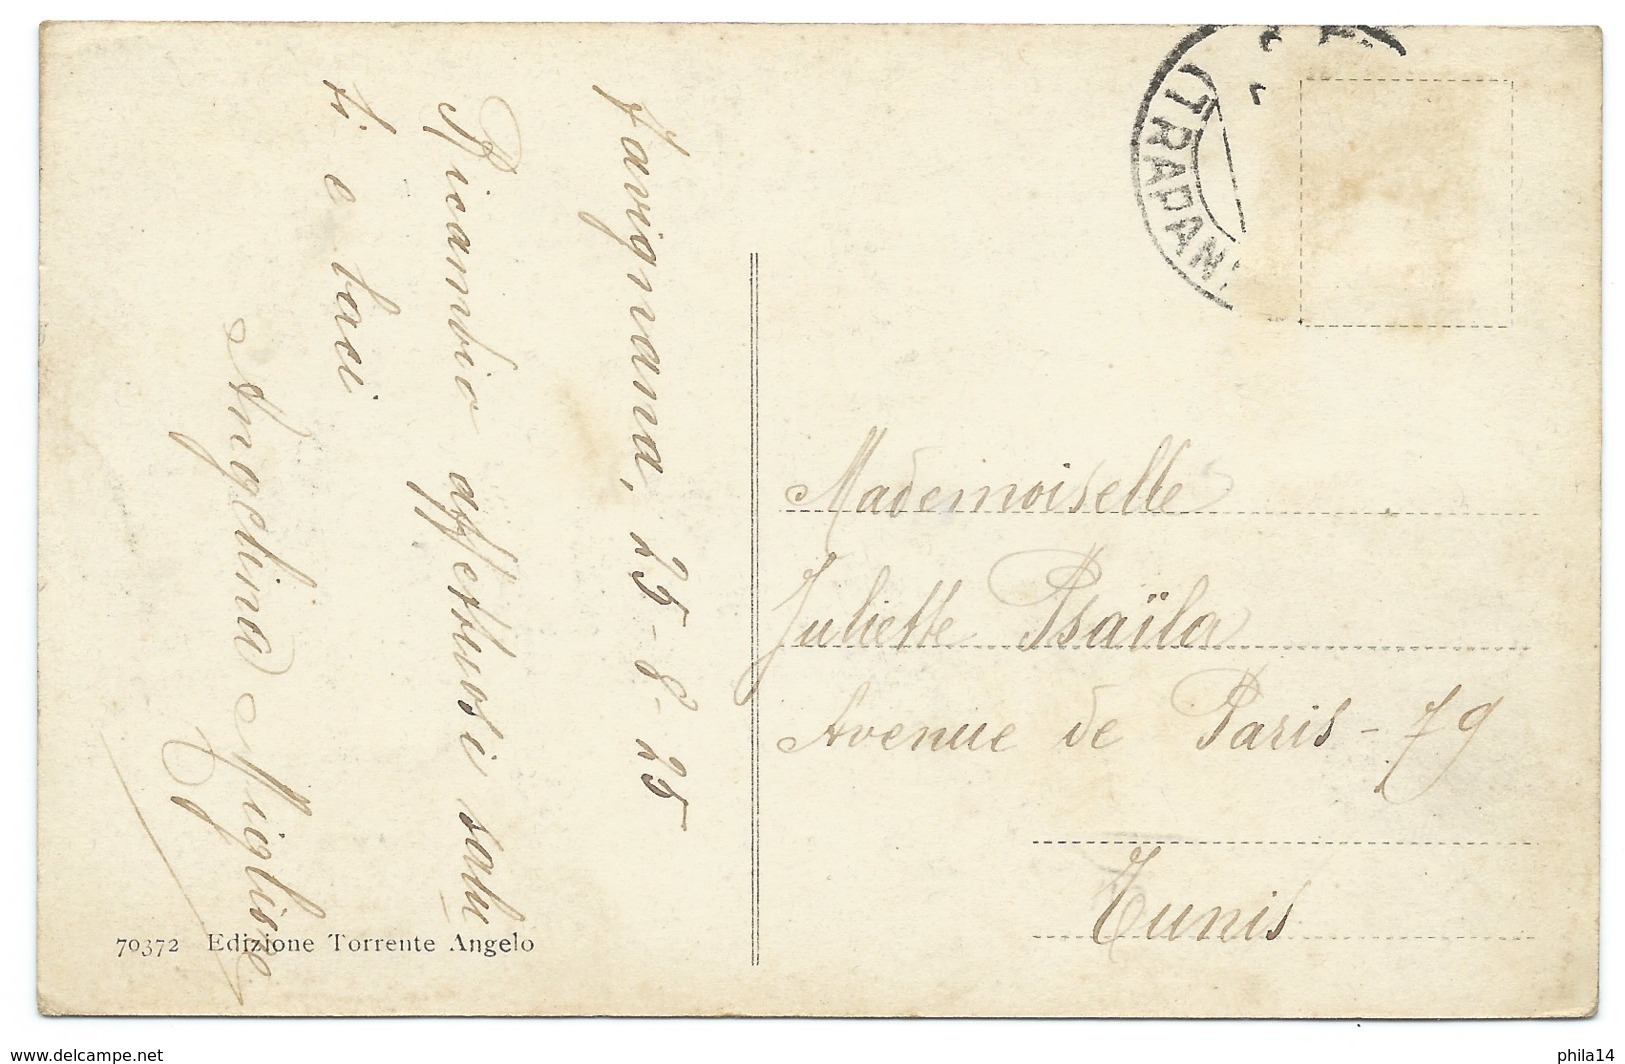 Favignana, 25-8-25
Ricambio affettuosi salu
ti e baci
Angelina Miglione
(TRAPANI
Mademoiselle
Juliette Psaïla
Avenue de Paris - 79
Tunis
70372 Edizione Torrente Angelo
www.delcampe.net
phila14